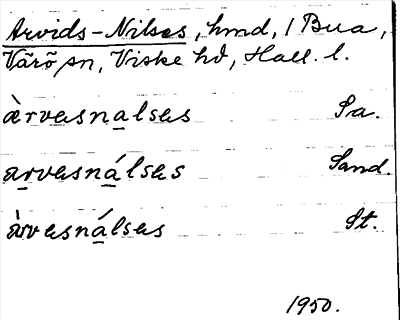 Arvids-Nilses, hmd, i Bua,
Värö sn, Viske hd, Hall. l.
àrvasnalsas Sa.
arvasnálsas Sand.
àrvasnálsas St.
1950.